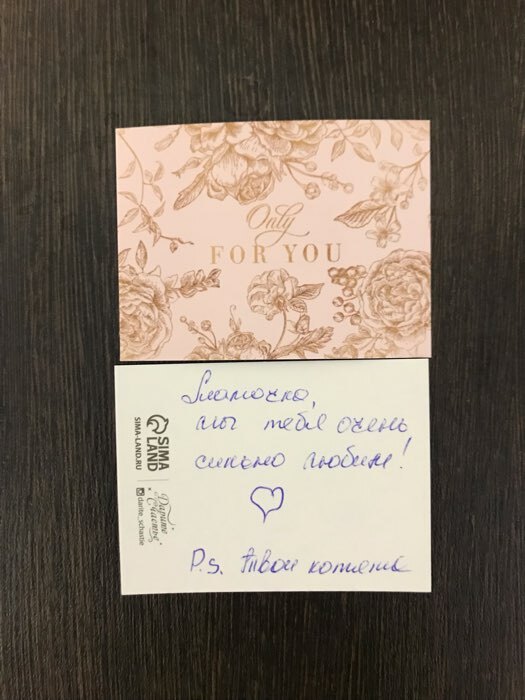 Only
FOR YOU
Мамочка,
мы тебя очень
сильно любим!
P.s. Твои котята
SIMA
LAND
SIMA-LAND.RU
Дарите
Счастье
darite_schastie